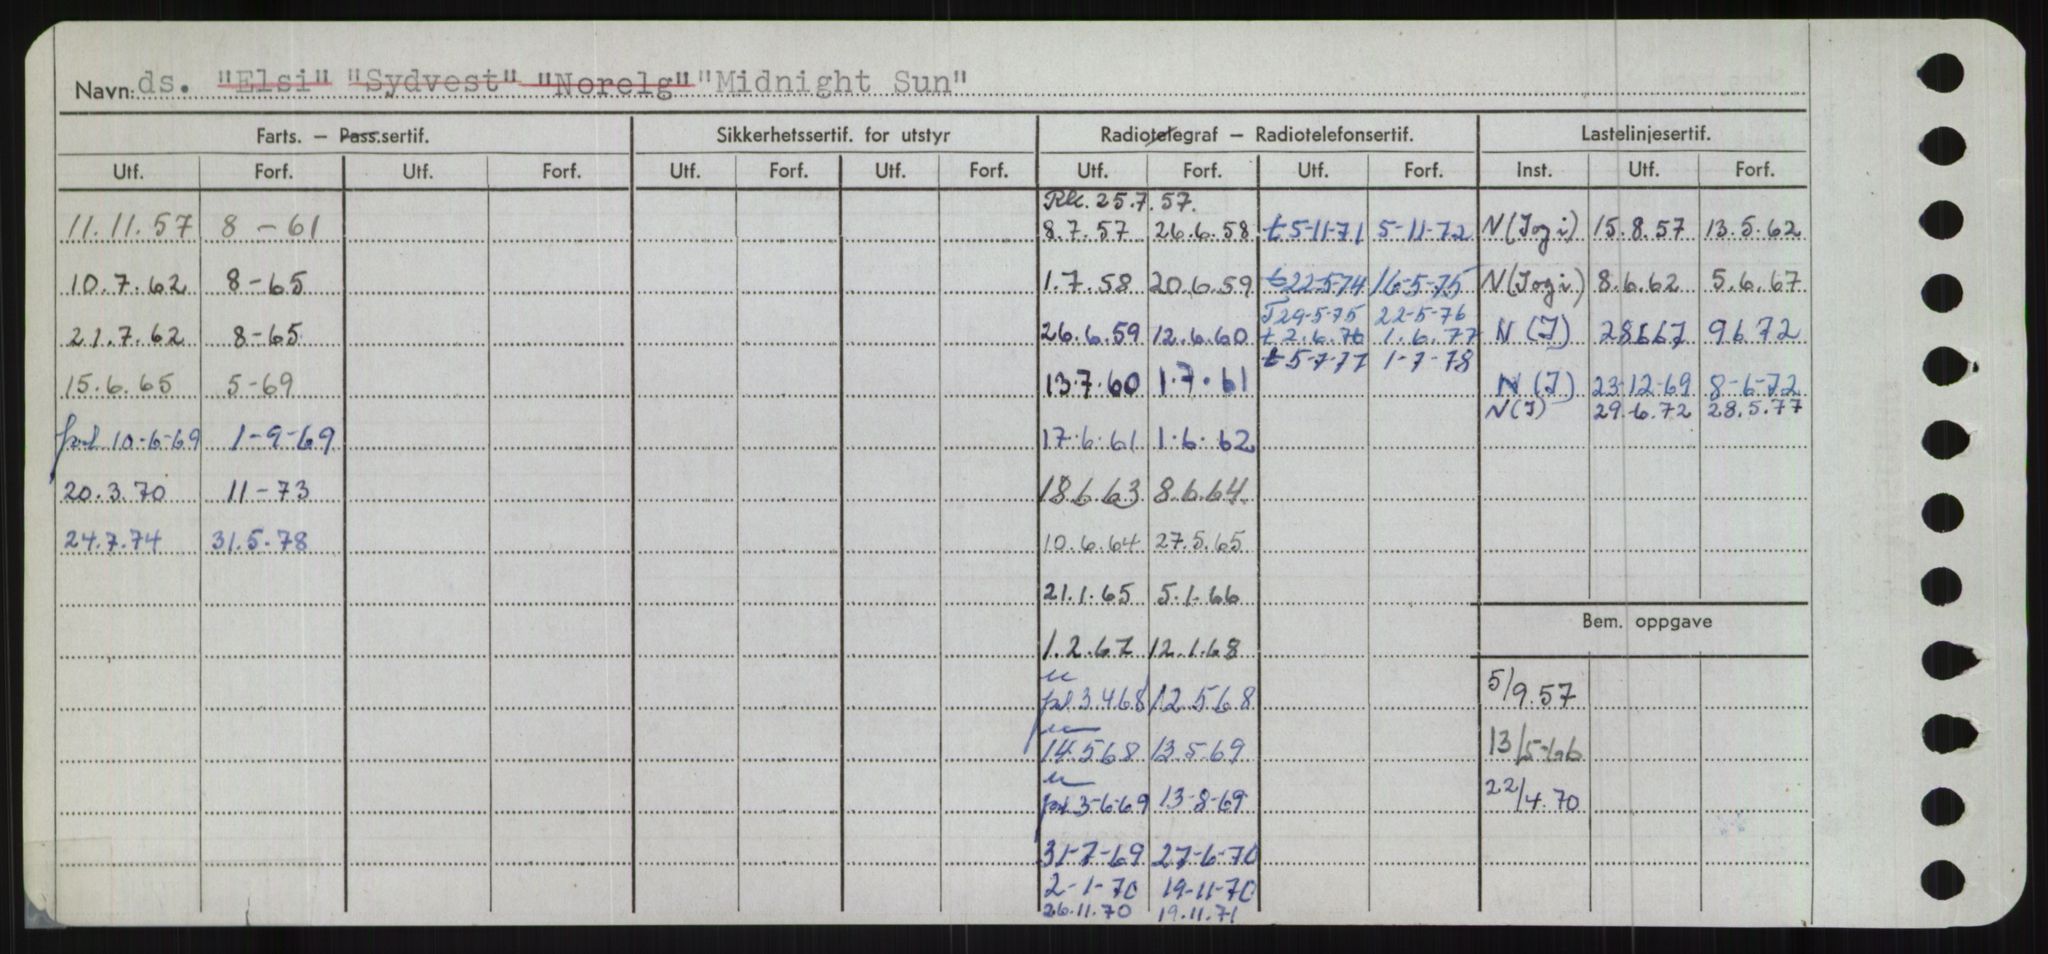 Navn: ds. "Elsi" "Sydvest" "Norelg" "Midnight Sun"
Farts. — Pass.sertif. Sikkerhetssertif. for utstyr Radiotelegraf — Radiotelefonsertif. Lastelinjesertif.
Utf. Forf. Utf. Forf. Utf. Forf. Utf. Forf. Utf. Forf. Utf. Forf. Inst. Utf. Forf.
25.7.57.
11.11.57 8 - 61 8.7.57 26.6.58 t 5-11-71 5-11-72 N (Jogi) 15.8.57 13.5.62
10.7.62 8-65 1.7.58 20.6.59 t 22-5-74 16-5-75 N (Jogi) 8.6.62 5.6.67
T 29-5-75 22-5-76
21.7.62 8-65 26.6.59 12.6.60 t 2.6.76 1.6.77 N (J) 28667 9672
t 5-7-77 1-7-78
15.6.65 5-69 13.7.60 1.7.61 N (J) 23-12-69 8-6-72
N (J) 29.6.72 28.5.77
10-6-69 1-9-69 17.6.61 1.6.62
20.3.70 11-73 18.6.63 8.6.64
24.7.74 31.5.78 10.6.64 27.5.65
21.1.65 5.1.66
Bem. oppgave
1.2.67 12.1.68
3.4.68 12.5.68 5/9.57
14.5.68 13.5.69 13/5-66
3-6-69 13-8-69 22/4.70
31-7-69 27-6-70
2-1-70 19-11-70
26.11.70 19.11.71